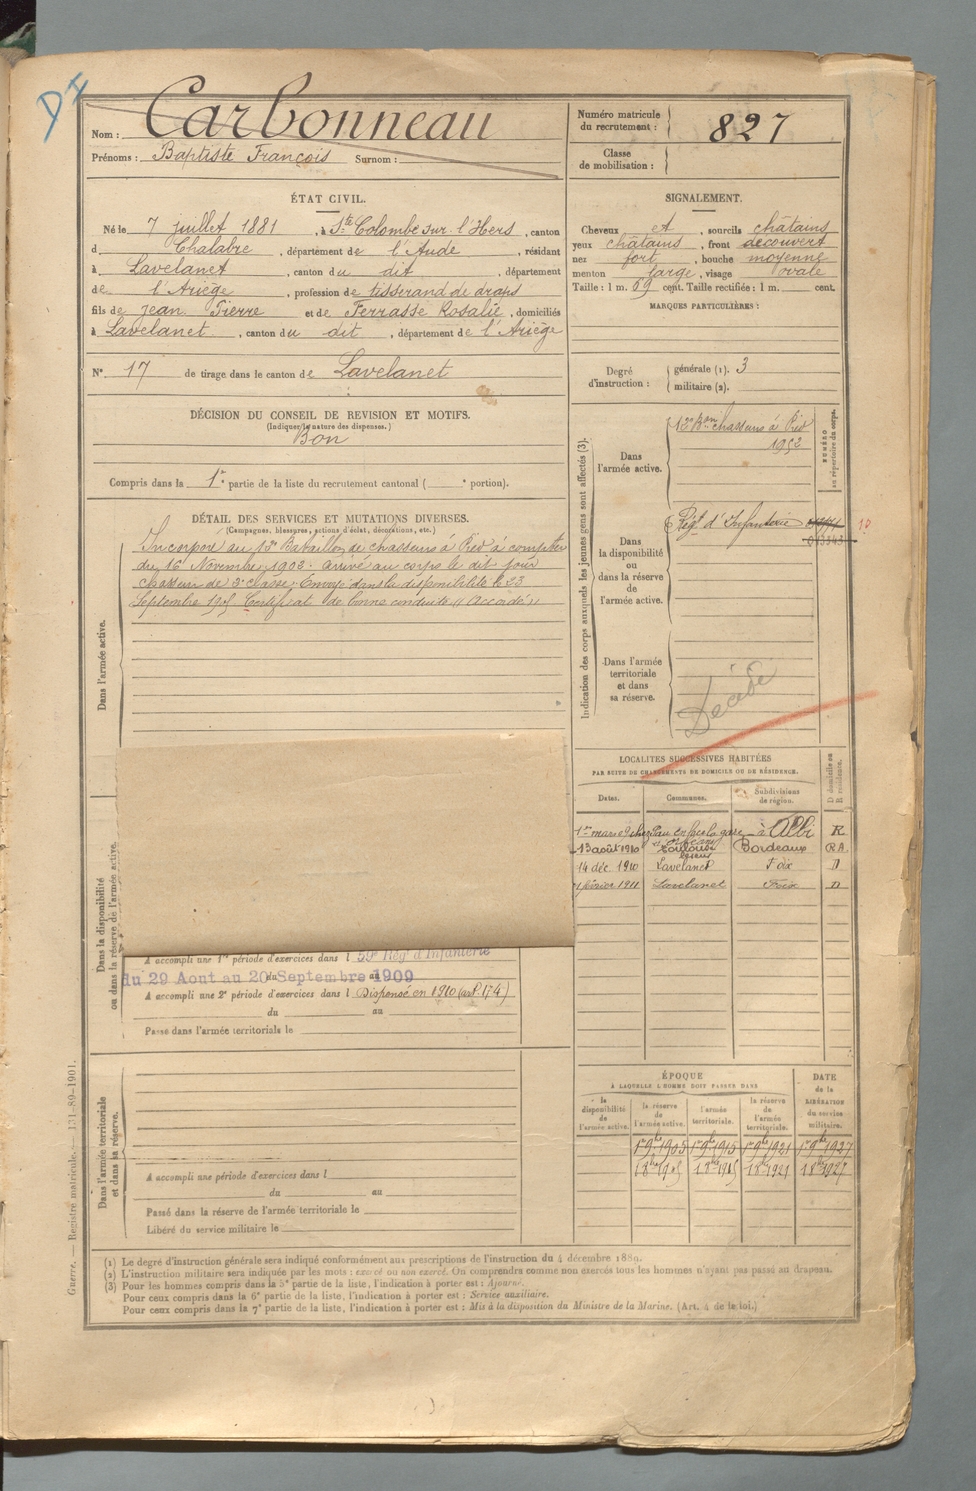 Nom : Carbonneau
Prénoms : Baptiste François Surnom :
Numéro matricule du recrutement : 827
Classe de mobilisation :
ÉTAT CIVIL.
Né le 7 juillet 1881, à Ste Colombe sur l'Hers, canton
d Chalabre, département de l'Aude, résidant
à Lavelanet, canton du dit, département
de l'Ariège, profession de tisserand de draps
fils de Jean Pierre et de Ferrasse Rosalie, domiciliés
à Lavelanet, canton du dit, département de l'Ariège
N° 17 de tirage dans le canton de Lavelanet
DÉCISION DU CONSEIL DE REVISION ET MOTIFS.
(Indiquer la nature des dispenses.)
Bon
Compris dans la 1re partie de la liste du recrutement cantonal ( e portion).
SIGNALEMENT.
Cheveux et, sourcils châtains
yeux châtains, front découvert
nez fort, bouche moyenne
menton large, visage ovale
Taille : 1 m. 69 cent. Taille rectifiée : 1 m. cent.
MARQUES PARTICULIÈRES :
Degré d'instruction : générale (1). 3
militaire (2).
DÉTAIL DES SERVICES ET MUTATIONS DIVERSES.
(Campagnes, blessures, actions d'éclat, décorations, etc.)
Dans l'armée active.
Incorporé au 13e Bataillon de chasseurs à Pied à compter
du 16 Novembre 1902. arrivé au corps le dit jour
chasseur de 2e classe. Envoyé dans la disponibilité le 23
Septembre 1905 Certificat de bonne conduite "Accordé"
Indication des corps auxquels les jeunes gens sont affectés (3).
NUMÉRO au répertoire du corps.
Dans l'armée active.
Bon chasseurs à Pied
Dans la disponibilité ou dans la réserve de l'armée active.
Régt d'Infanterie
Dans l'armée territoriale et dans sa réserve.
Décédé
LOCALITÉS SUCCESSIVES HABITÉES
PAR SUITE DE CHANGEMENTS DE DOMICILE OU DE RÉSIDENCE.
Dates. Communes. Subdivisions de région. D domicile ou R résidence.
1er mars 09 chez Pau en face la gare à Albi R
13 août 1910 Bordeaux RA
14 déc. 1910 Lavelanet Foix D
1 février 1911 Lavelanet Foix D
Dans la disponibilité ou dans la réserve de l'armée active.
A accompli une 1re période d'exercices dans l 59e Régt d'Infanterie
du 29 Aout au 20 Septembre 1909
A accompli une 2e période d'exercices dans l Dispensé en 1910 (art. 174)
du au
Passé dans l'armée territoriale le
Dans l'armée territoriale et dans sa réserve.
A accompli une période d'exercices dans l
du au
Passé dans la réserve de l'armée territoriale le
Libéré du service militaire le
ÉPOQUE
A LAQUELLE L'HOMME DOIT PASSER DANS
la disponibilité de l'armée active.
la réserve de l'armée active.
l'armée territoriale.
la réserve de l'armée territoriale.
DATE de la LIBÉRATION du service militaire.
1er 9bre 1905 1er 9bre 1915 1er 9bre 1921 1er 9bre 1927
(1) Le degré d'instruction générale sera indiqué conformément aux prescriptions de l'instruction du 4 décembre 1889.
(2) L'instruction militaire sera indiquée par les mots : exercé ou non exercé. On comprendra comme non exercés tous les hommes n'ayant pas passé au drapeau.
(3) Pour les hommes compris dans la 5e partie de la liste, l'indication à porter est : Ajourné.
Pour ceux compris dans la 6e partie de la liste, l'indication à porter est : Service auxiliaire.
Pour ceux compris dans la 7e partie de la liste, l'indication à porter est : Mis à la disposition du Ministre de la Marine. (Art. 4 de la loi.)
Guerre. — Registre matricule. — 131-89-1901.